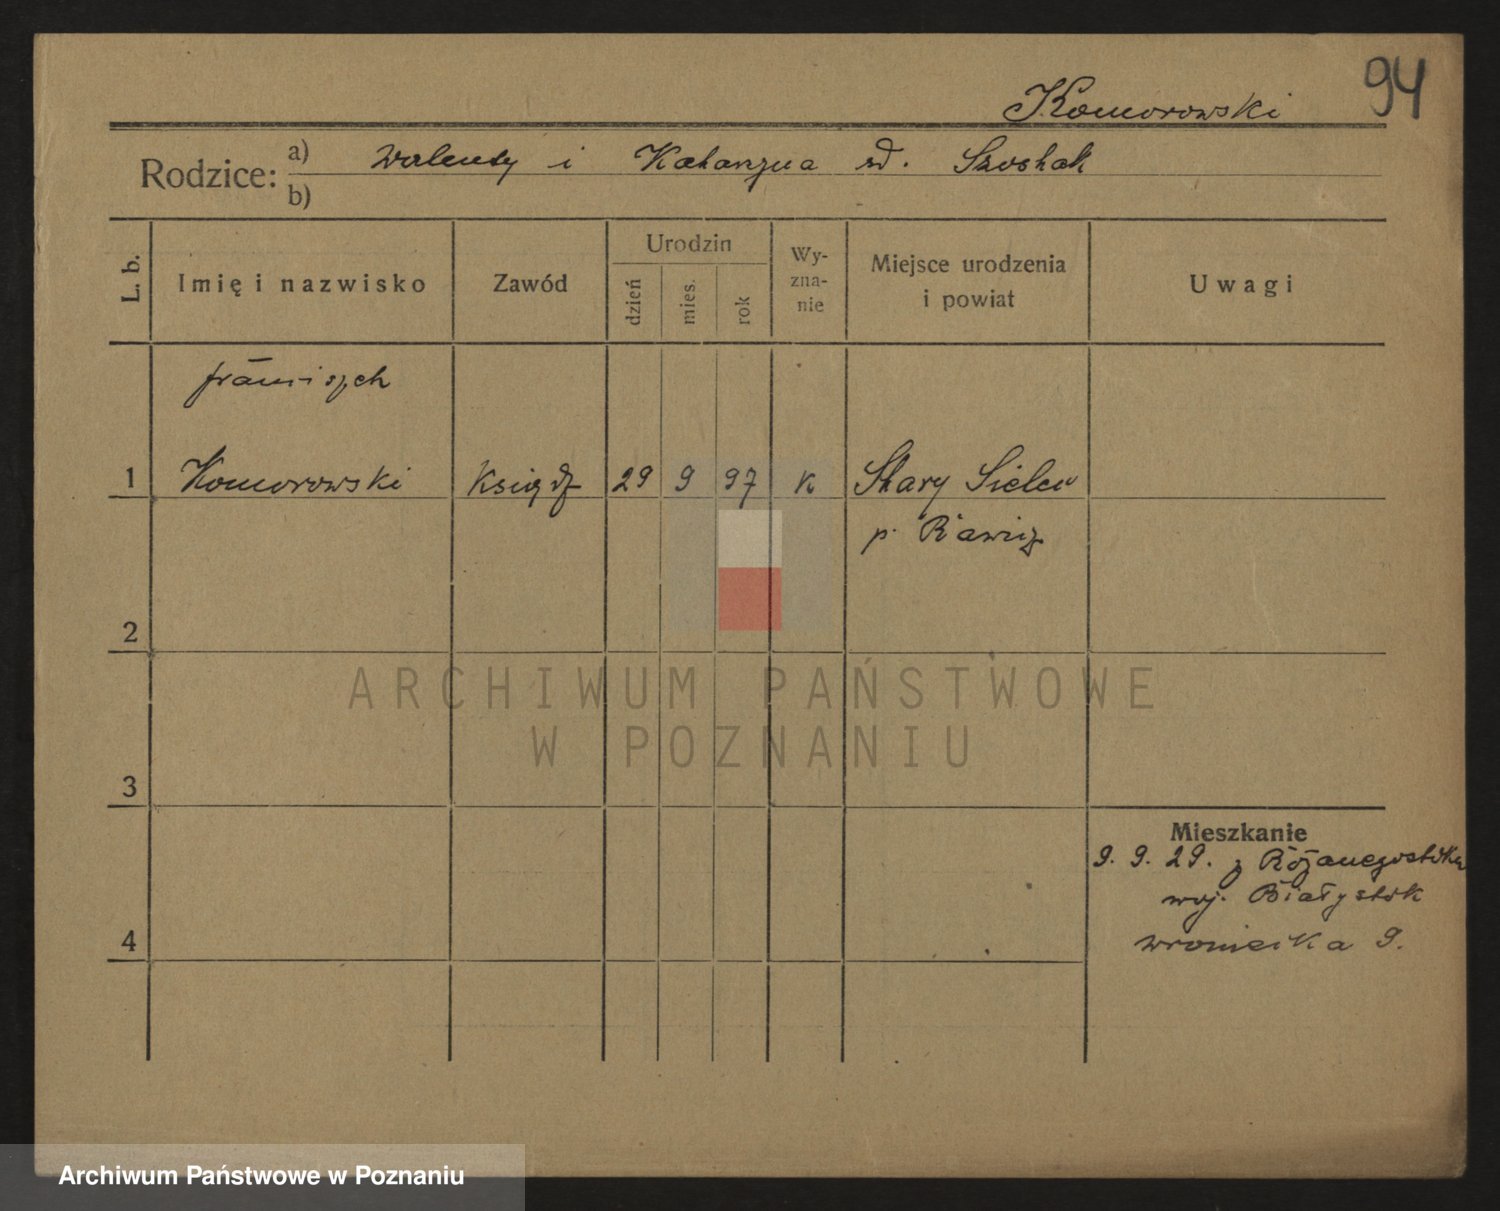 94
Komorowski
Rodzice: a) Walenty i Katarzyna rd. Szostak
b)
L. b.
Imię i nazwisko
Zawód
Urodzin
dzień
mies.
rok
Wy-
zna-
nie
Miejsce urodzenia
i powiat
Uwagi
Franciszek
1 Komorowski Ksiądz 29 9 97 K Stary Sielec
p. Rawicz
2
3
Mieszkanie
9. 9. 29. z Różanegostoku
woj. Białystok
4 Wroniecka 9.
ARCHIWUM PAŃSTWOWE
W POZNANIU
Archiwum Państwowe w Poznaniu